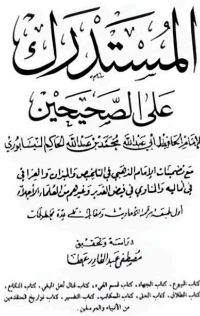 المستدرك
على الصحيحين
للإمام الحافظ أبي عبد الله محمد بن عبد الله الحاكم النيسابوري
مع تضمينات الإمام الذهبي في التلخيص والميزان والعراقي
في أماليه والمناوي في فيض القدير وغيرهم من العلماء الأجلاء
دراسة وتحقيق
مصطفى عبد القادر عطا
كتاب البيوع، كتاب الجهاد، كتاب قسم الفيء، كتاب قتال أهل البغي، كتاب النكاح،
كتاب الطلاق، كتاب العتق، كتاب المكاتب، كتاب التفسير، كتاب تواريخ المتقدمين
من الأنبياء والمرسلين